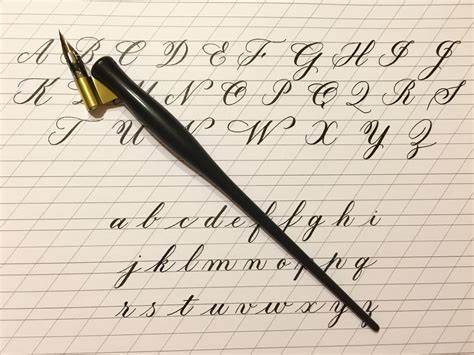 A B C D E F G H I J
K L M N O P Q R S
T U V W X Y Z
a b c d e f g h i
j k l m n o p q
r s t u v w x y z